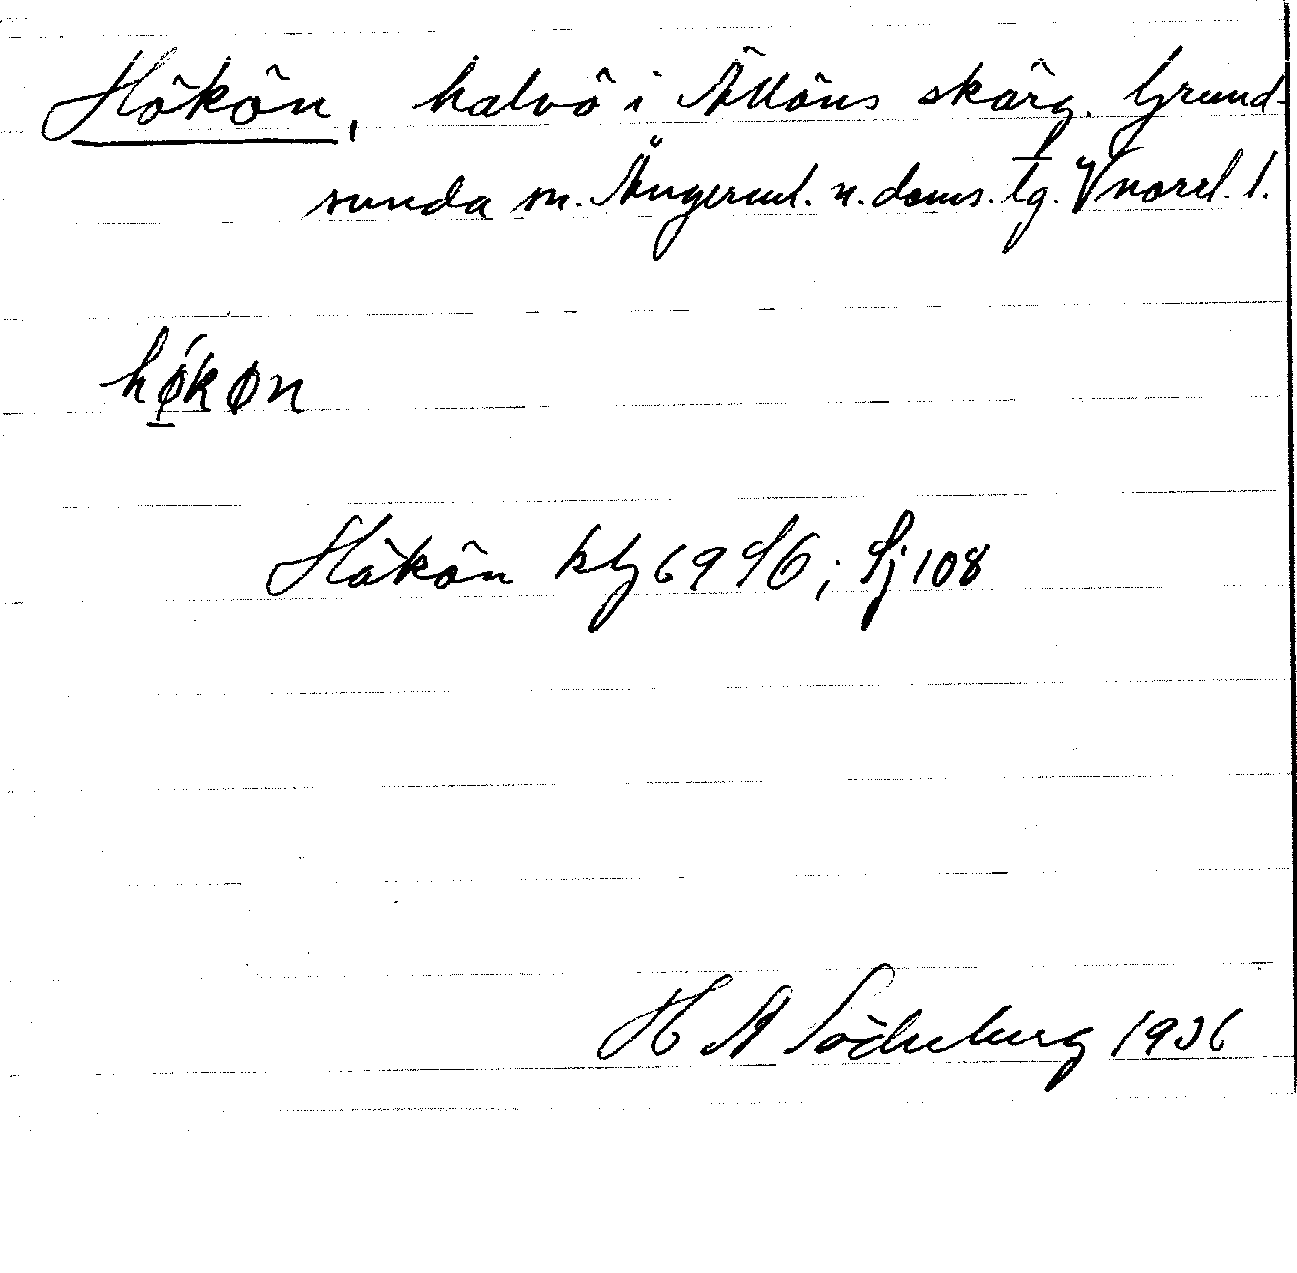 Hökön, halvö i Ällöns skärg. Grund-
sunda sn. Ångerml. n. doms. tg. Vnorrl. l.
høkøn
Hökön kbl 69 S6; Sj 108
H A Söderberg 1936